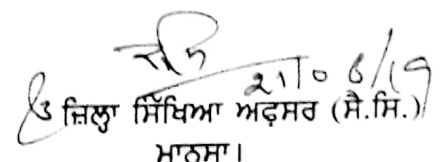 21/06/19
ਜ਼ਿਲ੍ਹਾ ਸਿੱਖਿਆ ਅਫ਼ਸਰ (ਸੈ.ਸਿ.)
ਮਾਨਸਾ।